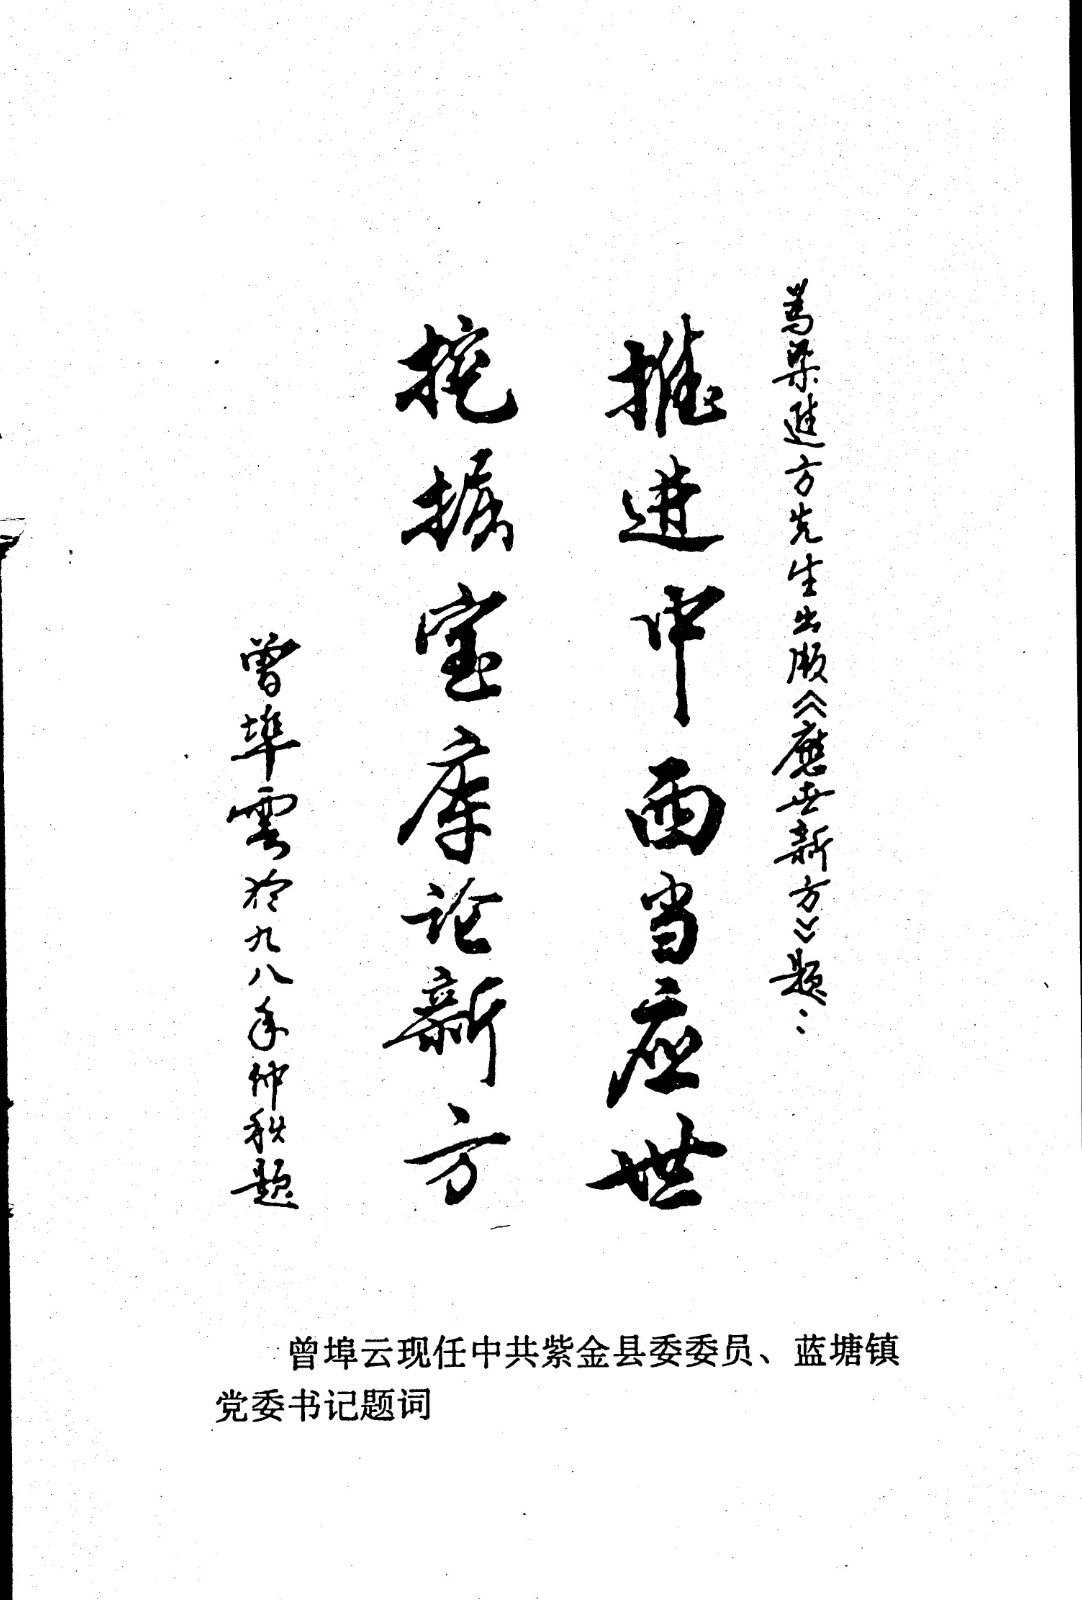 爲梁進方先生出版《應世新方》題：
推進中西当应世
挖掘宝库论新方
曾埠雲於九八年仲秋题
曾埠云现任中共紫金县委委员、蓝塘镇
党委书记题词